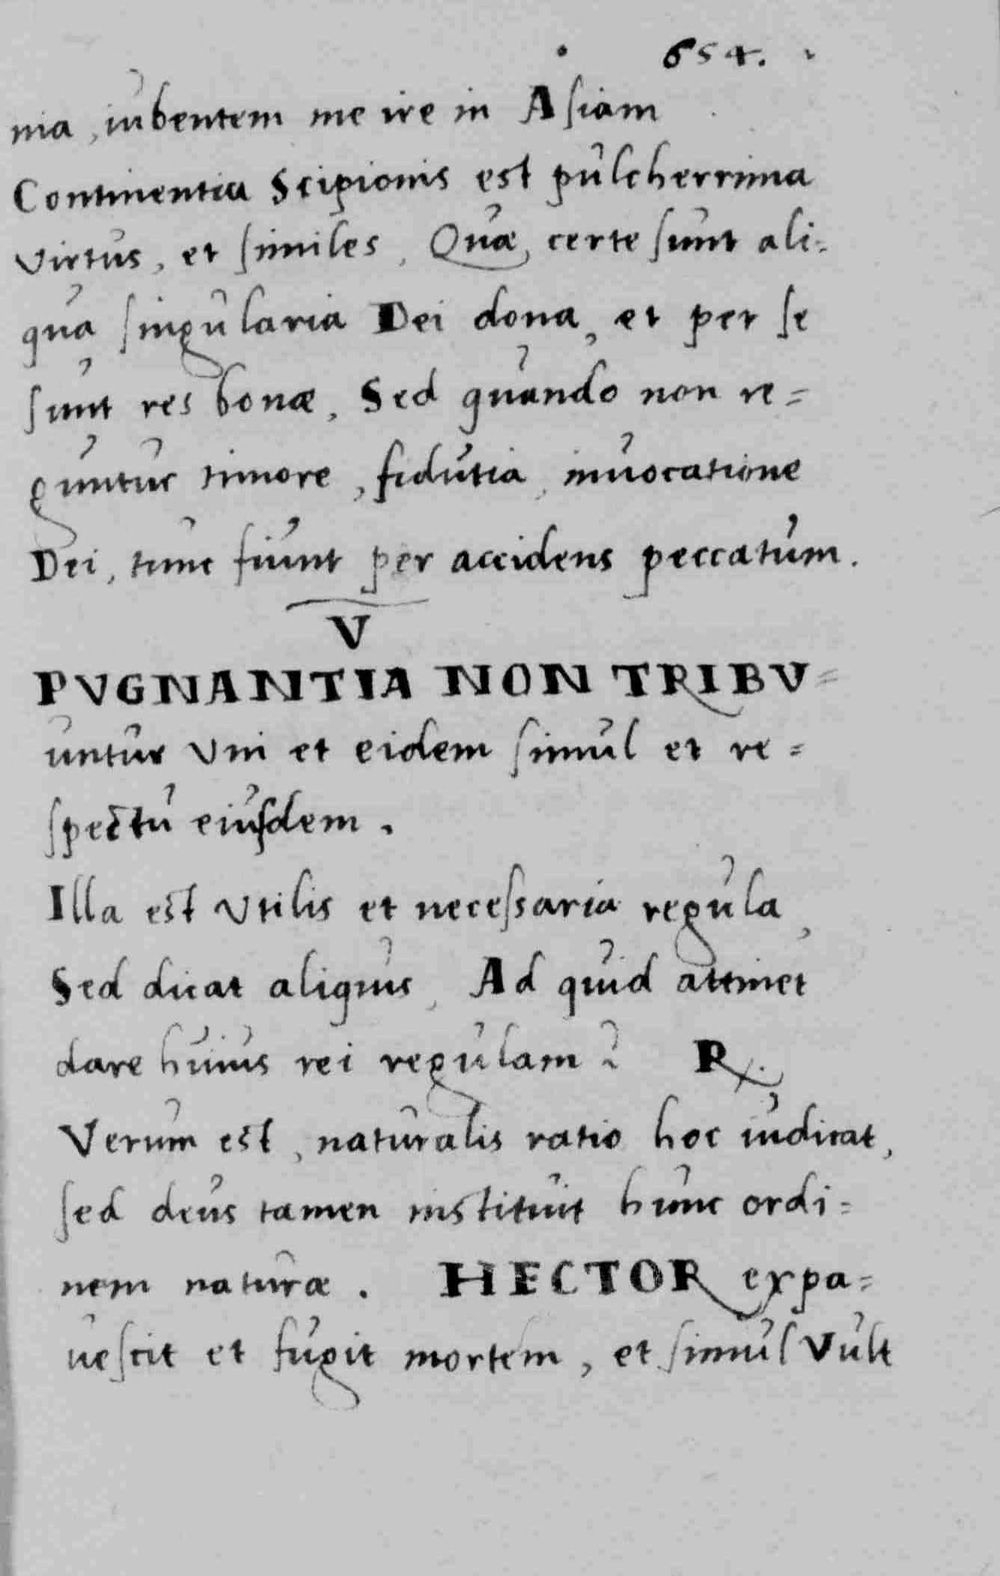 654.
nia, iubentem me ire in Asiam
Continentia Scipionis est pulcherrima
virtus, et similes, Quæ certe sunt ali=
qua singularia Dei dona, et per se
sunt res bonæ, Sed quando non re=
guntur timore, fidutia, inuocatione
Dei, tunc fiunt per accidens peccatum.
V
PVGNANTIA NON TRIBV=
untur vni et eidem simul et re=
spectu eiusdem.
Illa est vtilis et necessaria regula,
Sed dicat aliquis, Ad quid attinet
dare huius rei regulam? R.
Verum est, naturalis ratio hoc iudicat,
sed deus tamen instituit hunc ordi=
nem naturæ. HECTOR expa=
uescit et fugit mortem, et simul vult